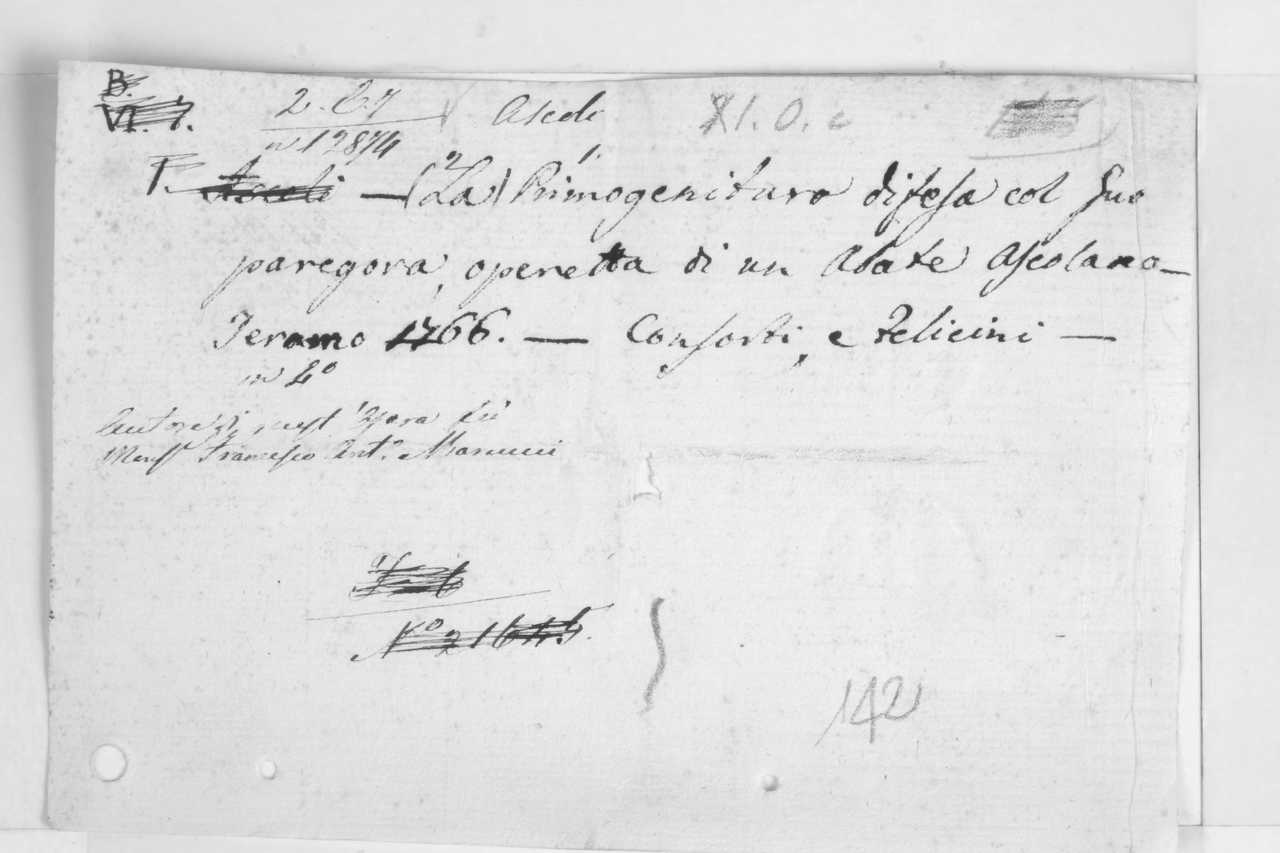 B.
VI. 7.
2. E. 7 Ascoli XI. O. c
n 12874
2 1.
T. Ascoli — (La) Primogenitura difesa col suo
paregora, operetta di un Abate Ascolano —
Teramo 1766. — Consorti, e Felicini —
in 4º
Autore di quest'Opera fu
Monsr Francesco Antº Marcucci
Nº 21645.
142